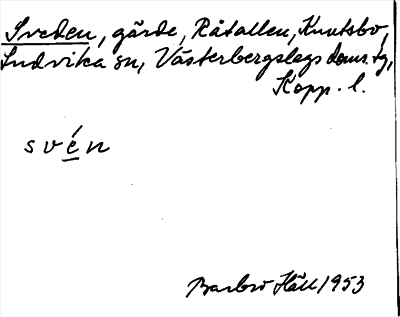 Sveden, gärde, Råtallen, Knutsbo,
Ludvika sn, Västerbergslags doms.tg,
Kopp. l.
svén
Barbro Häll 1953